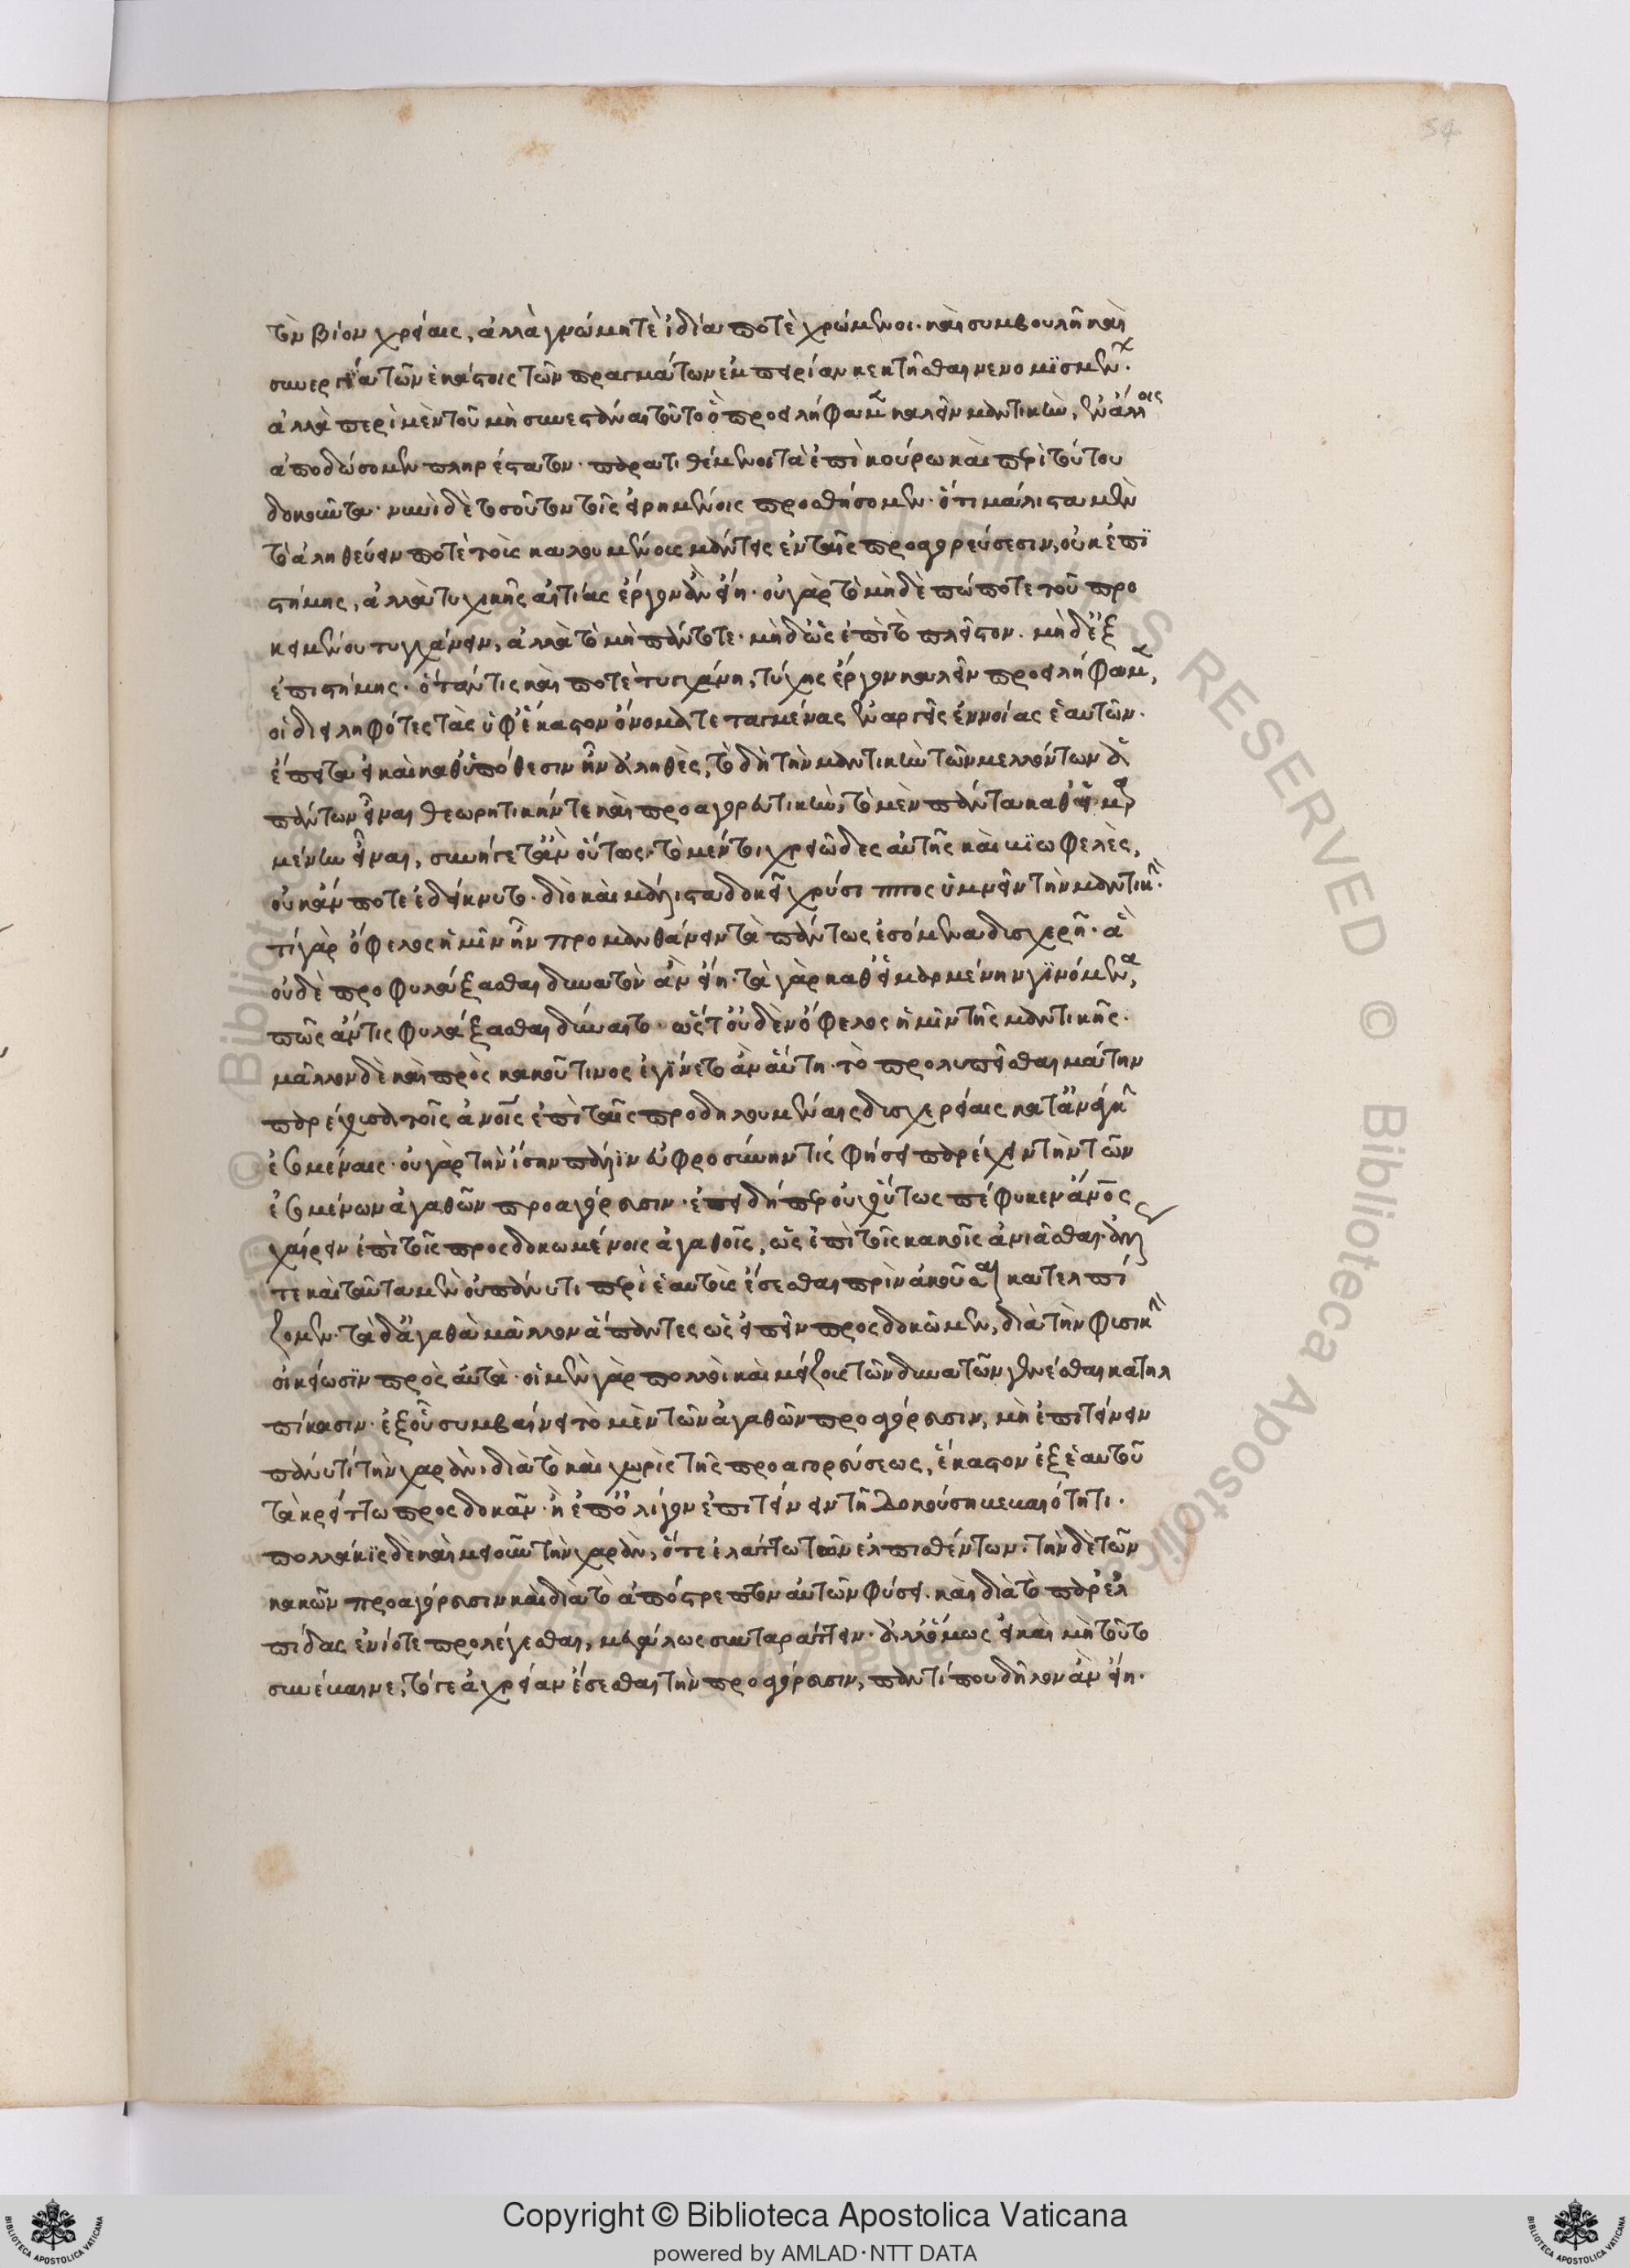 54
τὸν βίον χρείαις, ἀλλὰ γνώμη τὲ ἰδία ποτὲ χρώμενοι. καὶ συμβουλῆ καὶ
συνεργεία τῶν ἑκάστοις τῶν πραγμάτων ἐμπειρίαν κεκτῆσθαι νενομϊσμένων.
ἀλλὰ περὶ μὲν τοῦ μὴ συνεστάναι τοῦτο ὃ προειλήφαμεν καλεῖν μαντικὴν, ἐν ἄλλοις
ἀποδώσομεν πληρέστατον. παρατιθέμενοι τὰ ἐπικούρω καὶ περὶ τούτου
δοκοῦντα. νυνὶ δὲ τοσοῦτον τοῖς εἰρημένοις προσθήσομεν. ὅτι μάλιστα μὲν
τὸ ἀληθεύειν ποτὲ τοὺς καλουμένους μάντεις ἐν ταῖς προαγορεύσεσιν, οὐκ ἐπϊ
στήμης, ἀλλὰ τυχικῆς αἰτίας ἔργον ἂν εἴη. οὐ γὰρ τὸ μηδὲ πώποτε τοῦ προ
κειμένου τυγχάνειν, ἀλλὰ τὸ μὴ πάντοτε. μηδ' ὡς ἐπὶ τὸ πλεῖστον. μηδ' ἐξ
ἐπιστήμης. ὅταν τις καὶ ποτὲ τυγχάνη, τύχης ἔργον καλεῖν προειλήφαμεν,
οἱ διειληφότες τὰς ὑφ' ἕκαστον ὄνομα τεταγμένας ἐναργεῖς ἐννοίας ἑαυτῶν.
ἔπειτα εἰ καὶ καθ' ὑπόθεσιν ἦν ἀληθὲς, τὸ δὴ τὴν μαντικὴν τῶν μελλόντων ἁ
πάντων εἶναι θεωρητικήν τε καὶ προαγορευτικὴν, τὸ μὲν πάντα καθ' εἱμαρ
μένην εἶναι, συνήγετ' ἂν οὕτως. τὸ μέντοι χρειῶδες αὐτῆς καὶ βϊωφελὲς,
οὐκ ἄν ποτε ἐδείκνυτο. διὸ καὶ μάλιστα δοκεῖ χρύσιππος ὑμνεῖν τὴν μαντικήν.
τί γὰρ ὄφελος ἡμῖν ἦν προμανθάνειν τὰ πάντως ἐσόμενα δυσχερῆ. ἃ
οὐδὲ προφυλάξασθαι δυνατὸν ἂν εἴη. τὰ γὰρ καθ' εἱμαρμένην γϊνόμενα,
πῶς ἄν τις φυλάξασθαι δύναιτο. ὥστ' οὐδὲν ὄφελος ἡμῖν τῆς μαντικῆς.
μᾶλλον δὲ καὶ πρὸς κακοῦ τινος ἐγίνετο ἂν αὕτη. τὸ προλυπεῖσθαι μάτην
παρέχουσα τοῖς ἀνοῖς ἐπὶ ταῖς προδηλουμέναις δυσχερείαις κατ' ἀνάγκην
ἐσομέναις. οὐ γὰρ τὴν ἴσην πάλϊν εὐφροσύνην τίς φήσει παρέχειν τὴν τῶν
ἐσομένων ἀγαθῶν προαγόρευσιν. ἐπειδήπερ οὐχ οὕτως πέφυκεν ἄνος
χαίρειν ἐπὶ τοῖς προσδοκωμένοις ἀγαθοῖς, ὡς ἐπὶ τοῖς κακοῖς ἀνιᾶσθαι. ἄλλως
τε καὶ ταῦτα μὲν οὐ πάνυ τι περὶ ἑαυτοὺς ἔσεσθαι πρὶν ἀκοῦσαι κατελπί
ζομεν. τὰ δ' ἀγαθὰ μᾶλλον ἅπαντες ὡς εἰπεῖν προσδοκῶμεν, διὰ τὴν φυσικὴν
οἰκείωσϊν πρὸς αὐτά. οἱ μὲν γὰρ πολλοὶ καὶ μείζους τῶν δυνατῶν γενέσθαι κατηλ
πίκασιν. ἐξ οὗ συμβαίνει τὸ μὲν τῶν ἀγαθῶν προαγόρευσιν, μὴ ἐπιτείνειν
πάνυ τί τὴν χαρὰν, διὰ τὸ καὶ χωρὶς τῆς προαγορεύσεως, ἕκαστον ἐξ ἑαυτοῦ
τὰ κρείττω προσδοκᾶν. ἢ ἐπ' ὀλίγον ἐπιτείνειν τῆ δοκούση βεβαιότητι.
πολλάκϊς δὲ καὶ μειοῦν τὴν χαρὰν, ὅτε ἐλάττω τῶν ἐλπισθέντων. τὴν δὲ τῶν
κακῶν προαγόρευσιν καὶ διὰ τὸ ἀπότρεπτον αὐτῶν φύσει. καὶ διὰ τὸ παρ' ἐλ
πίδας ἐνίοτε προλέγεσθαι, μεγάλως συνταράττειν. ἀλλ' ὅμως εἰ καὶ μὴ τοῦτο
συνέβαινε, τό γε ἀχρεῖαν ἔσεσθαι τὴν προαγόρευσιν, παντί που δῆλον ἂν εἴη.
© Biblioteca Apostolica Vaticana ALL RIGHTS RESERVED © Biblioteca Apostolica Vaticana
Copyright © Biblioteca Apostolica Vaticana
powered by AMLAD·NTT DATA